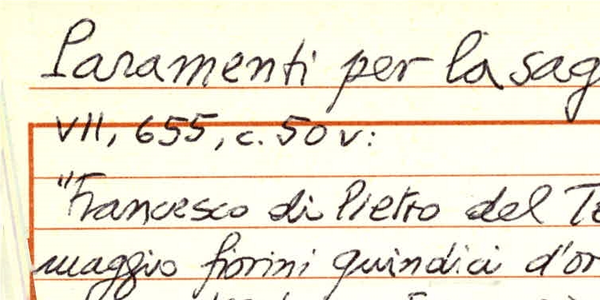 Paramenti per la sag
VII, 655, c. 50 v:
"Francesco di Pietro del Te
maggio fiorini quindici d'or